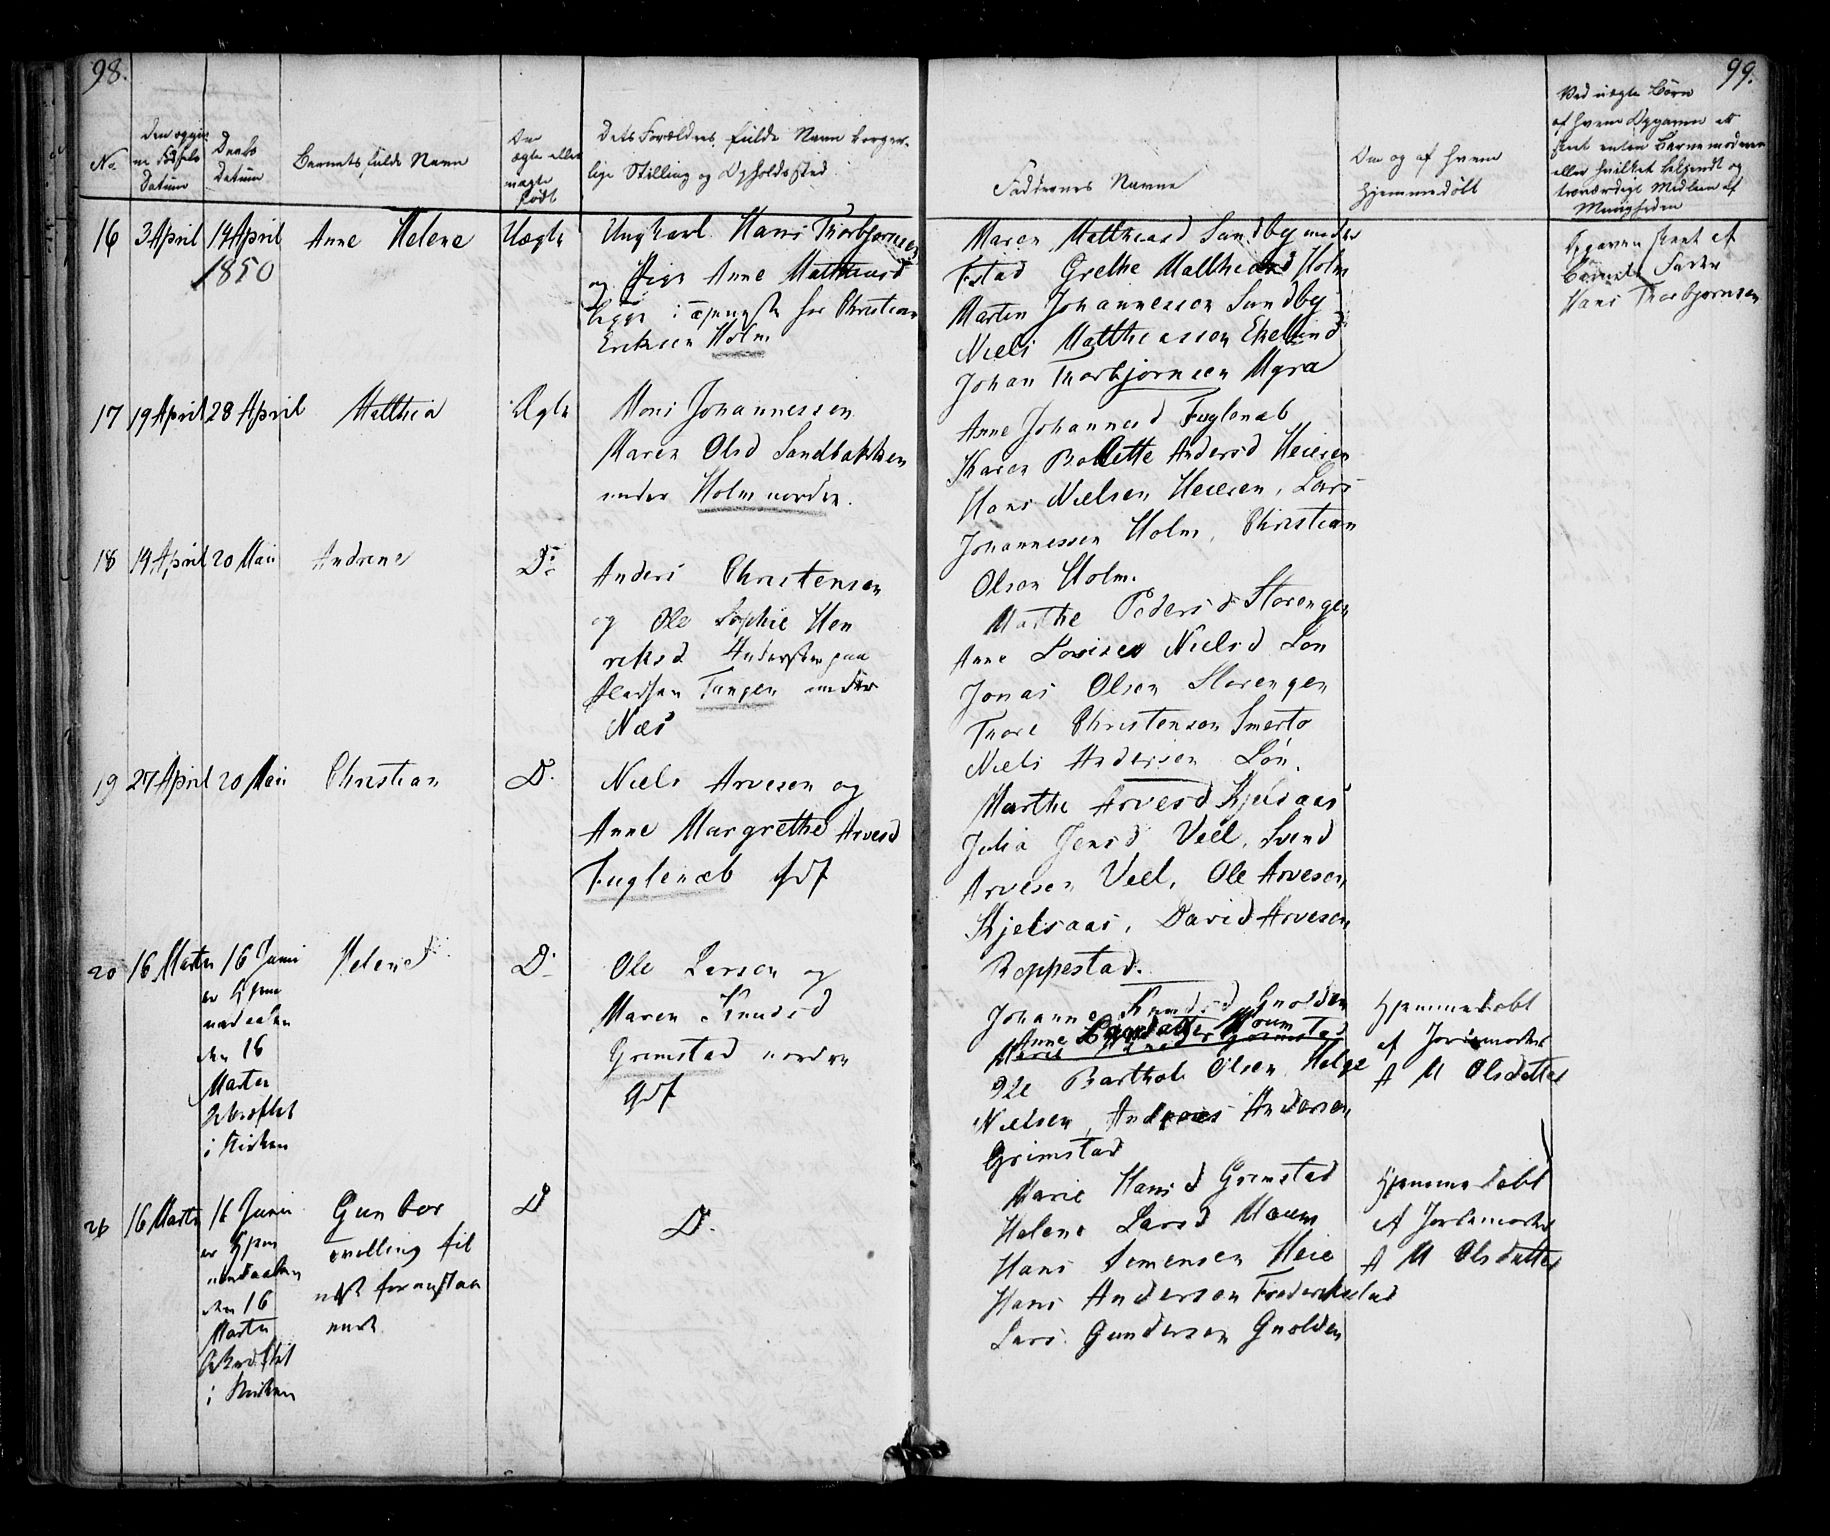 98.
99.
No
Daabs
Datum
Barnets fulde Navn
ægte eller
uægte
født
Dets Forældres fulde Navn borger-
lige Stilling og Opholdssted
Faddernes Navne
Om og af hvem
hjemmedøbt
Ved uægte Børn
af hvem Opgaven er
skeet enten Barnemoderen
eller hvilket bekjendt og
troværdigt Medlem af
Menigheden
16 3 April 14 April
1850
Anne Helene
Uægte
Ungkarl Hans Thorbjørnsen
og Pige Anne Matthiasd
Christian
Eriksen Holm
Maren Matthiasd Sundby
Grethe Matthiasd Holm
Marten Johannessen Sundby
Niels Matthiassen Ekelund
Johan Thorbjørnsen Myra
Opgaven skeet af
Barnets Fader
Hans Thorbjørnsen
17 19 April 28 April
Matthea
Ægte
Mons Johannessen
Maren Olsd Sandbakken
under Holm nordre.
Anne Johannesd Fuglenæb
Karen Bollette Andersd Heieren
Hans Nielsen Heieren, Lars
Johannessen Holm, Christian
Olsen Holm.
18 14 April 20 Mai
Andrene
Do
Anders Christensen
og Ole Sophie Hen
riksd
Tangen under
Næs
Marthe Pedersd Storengen
Anne Lovise Nielsd Løn
Jonas Olsen Storengen
Thore Christensen Smerto
Niels Andersen Løn.
19 27 April 20 Mai
Christian
D.
Niels Arvesen og
Anne Margrethe Arvesd
Fuglenæb Gdf
Marthe Arvesd Kjelsaas
Julia Jensd Veel, Svend
Arvesen Veel, Ole Arvesen
Kjelsaas, David Arvesen
Roppestad.
20 16 Marts 16 Juni
er hjem
medøben
den 16
Marts
i Kirken
Helene
D.
Ole Larsen og
Maren Knudsd
Grimstad nordre
Gdf
Johanne Knudsd Gnolden
Anne Larsdatter Moum
Ole Barthol Olsen, Helge
Nielsen, Andreas Andersen
Grimstad
Hjemmedøbt
af Jordmoder
A M Olsdatter
16 Marts 16 Juni
er hjem
den 16
Marts
i Kirken
Gunbor
Tvilling til
næst foranstaa
ende
D
D.
Marie Hansd Grimstad
Helene Larsd Moum
Hans Simensen Heie
Hans Andersen Frederikstad
Lars Gundersen Gnolden
Hjemmedøbt
af Jordemoder
A M Olsdatter